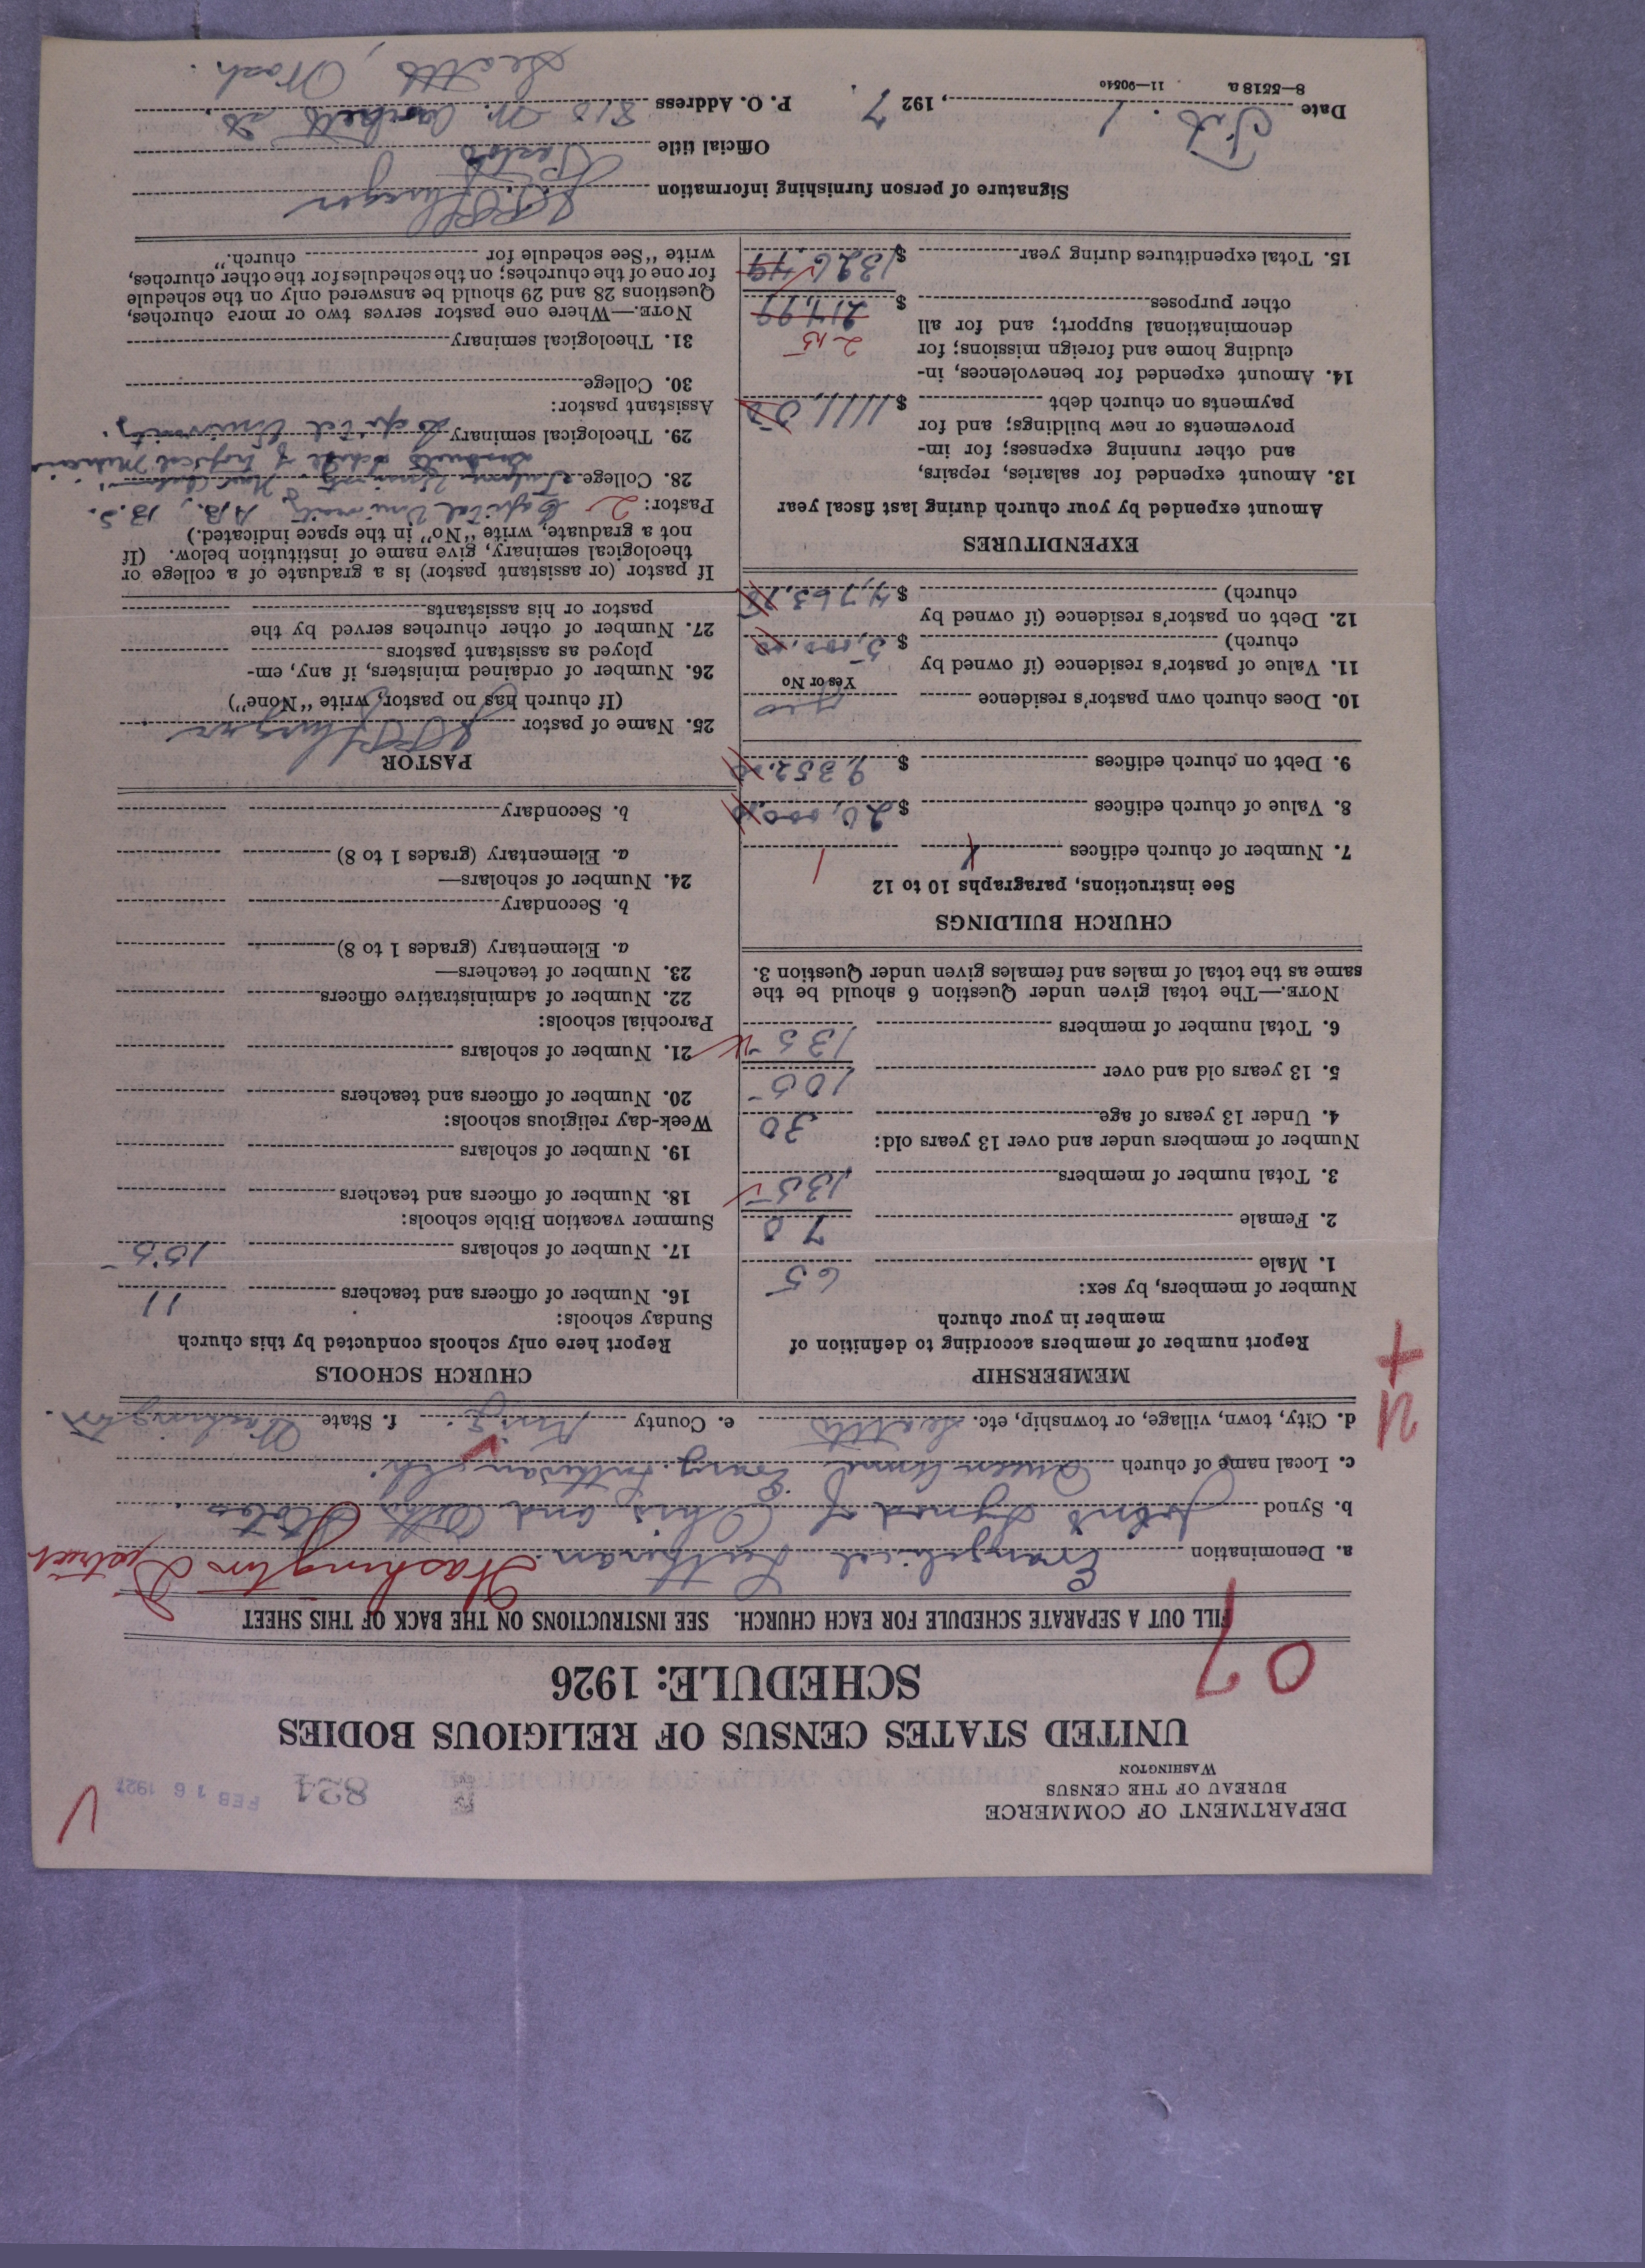 DEPARTMENT OF COMMERCE
BUREAU OF THE CENSUS
WASHINGTON
824
FEB 16 1927
UNITED STATES CENSUS OF RELIGIOUS BODIES
SCHEDULE: 1926
07
FILL OUT A SEPARATE SCHEDULE FOR EACH CHURCH. SEE INSTRUCTIONS ON THE BACK OF THIS SHEET
a. Denomination Evangelical Lutheran Washington District
b. Synod Joint Synod of Ohio and Other States
c. Local name of church Queen Anne Evang. Lutheran Ch.
d. City, town, village, or township, etc. Seattle e. County King f. State Washington.
MEMBERSHIP
Report number of members according to definition of
member in your church
Number of members, by sex:
1. Male 65
2. Female 70
3. Total number of members 135
Number of members under and over 13 years old:
4. Under 13 years of age 30
5. 13 years old and over 105
6. Total number of members 135
NOTE.—The total given under Question 6 should be the
same as the total of males and females given under Question 3.
CHURCH BUILDINGS
See instructions, paragraphs 10 to 12
7. Number of church edifices 1
8. Value of church edifices $ 20,000.00
9. Debt on church edifices $ 9352.00
10. Does church own pastor's residence yes
Yes or No
11. Value of pastor's residence (if owned by
church) $ 5,000.00
12. Debt on pastor's residence (if owned by
church) $ 4,763.
EXPENDITURES
Amount expended by your church during last fiscal year
13. Amount expended for salaries, repairs,
and other running expenses; for im-
provements or new buildings; and for
payments on church debt $ 1111.50
14. Amount expended for benevolences, in-
cluding home and foreign missions; for
denominational support; and for all
215
other purposes $ 214.99
15. Total expenditures during year $ 1326.49
CHURCH SCHOOLS
Report here only schools conducted by this church
Sunday schools:
16. Number of officers and teachers 11
17. Number of scholars 155
Summer vacation Bible schools:
18. Number of officers and teachers
19. Number of scholars
Week-day religious schools:
20. Number of officers and teachers
21. Number of scholars
Parochial schools:
22. Number of administrative officers
23. Number of teachers—
a. Elementary (grades 1 to 8)
b. Secondary
24. Number of scholars—
a. Elementary (grades 1 to 8)
b. Secondary
PASTOR
25. Name of pastor
(If church has no pastor, write "None")
26. Number of ordained ministers, if any, em-
ployed as assistant pastors
27. Number of other churches served by the
pastor or his assistants
If pastor (or assistant pastor) is a graduate of a college or
theological seminary, give name of institution below. (If
not a graduate, write "No" in the space indicated.)
Pastor: 2 Capital University A.B., B.S.
28. College Tulane University of
School of Tropical Medicine
29. Theological seminary Capital University.
Assistant pastor:
30. College
31. Theological seminary
NOTE.—Where one pastor serves two or more churches,
Questions 28 and 29 should be answered only on the schedule
for one of the churches; on the schedules for the other churches,
write "See schedule for church."
Signature of person furnishing information
Official title Pastor
Date Feb. 1, 1927. P. O. Address 810 W. St.
Seattle, Wash.
8—5518 a 11—90540